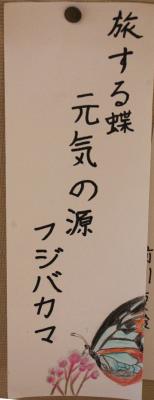 旅する蝶
元気の源
フジバカマ